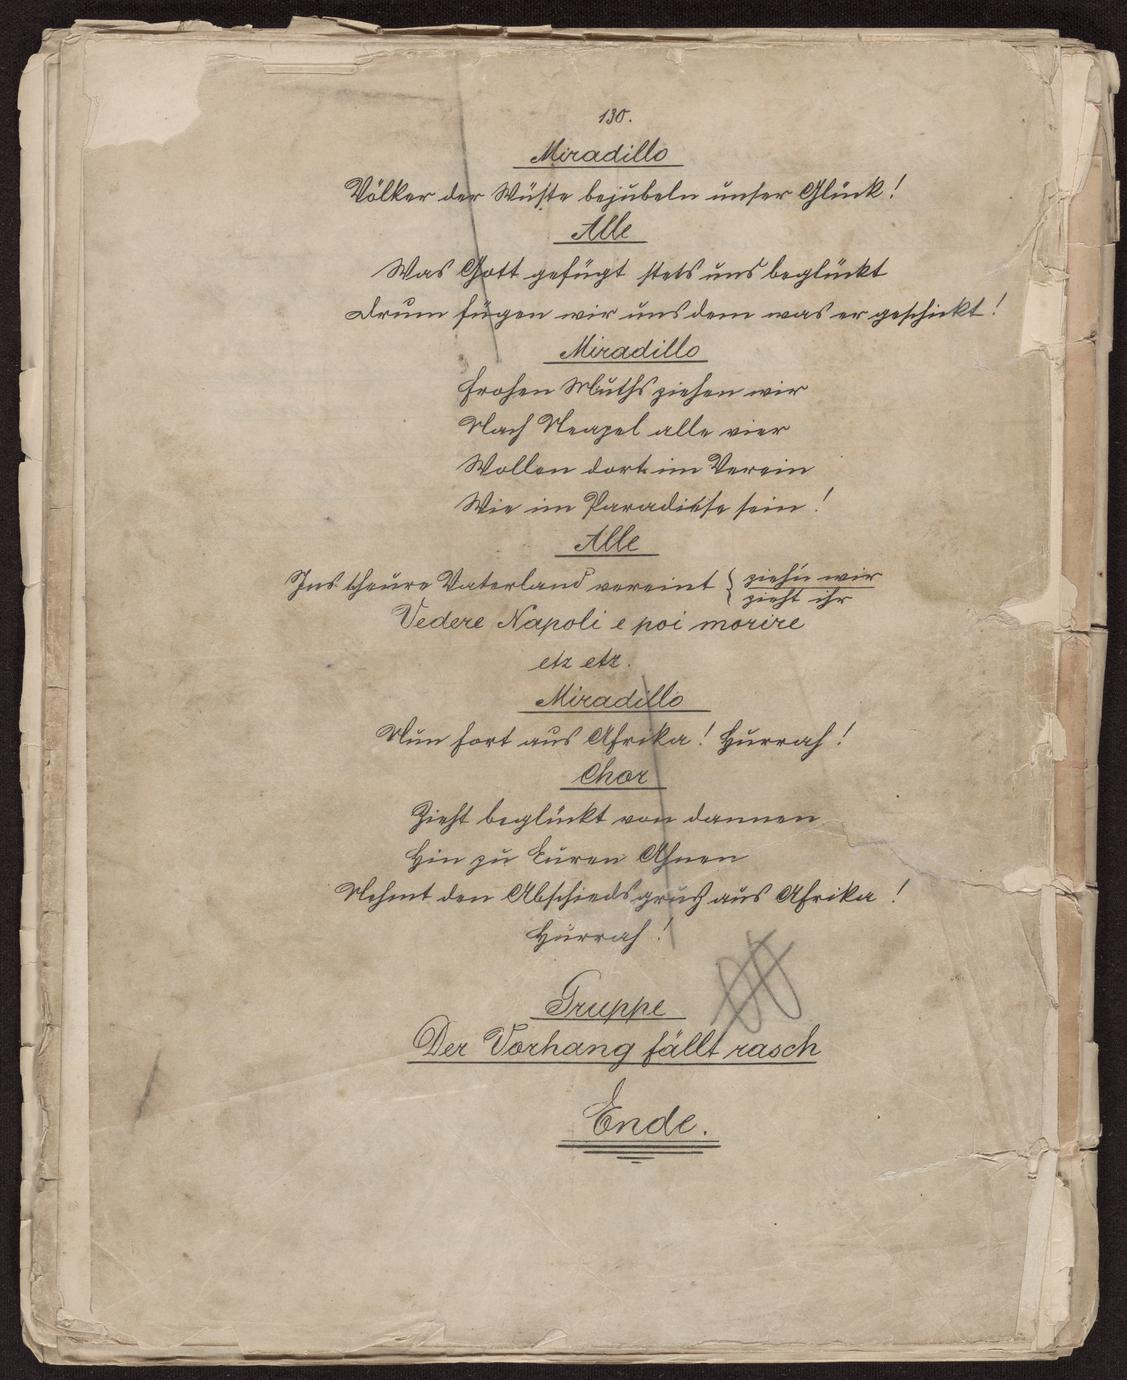 130.
Miradillo
Völker der Wüste bejubeln unser Glück!
Alle
Was Gott gefügt stets uns beglückt
Drum fügen wir uns dem was er geschickt!
Miradillo
Frohen Muths ziehen wir
Nach Neapel alle vier
Wollen dort im Verein
Wie im Paradiese sein!
Alle
Ins theure Vaterland vereint { ziehn wir
zieht ihr
Vedere Napoli e poi morire
etz etz.
Miradillo
Nun fort aus Afrika! Hurrah!
Chor
Zieht beglückt von dannen
Hin zu Euren Ahnen
Nehmt den Abschiedsgruß aus Afrika!
Hurrah!
Gruppe
Der Vorhang fällt rasch
Ende.